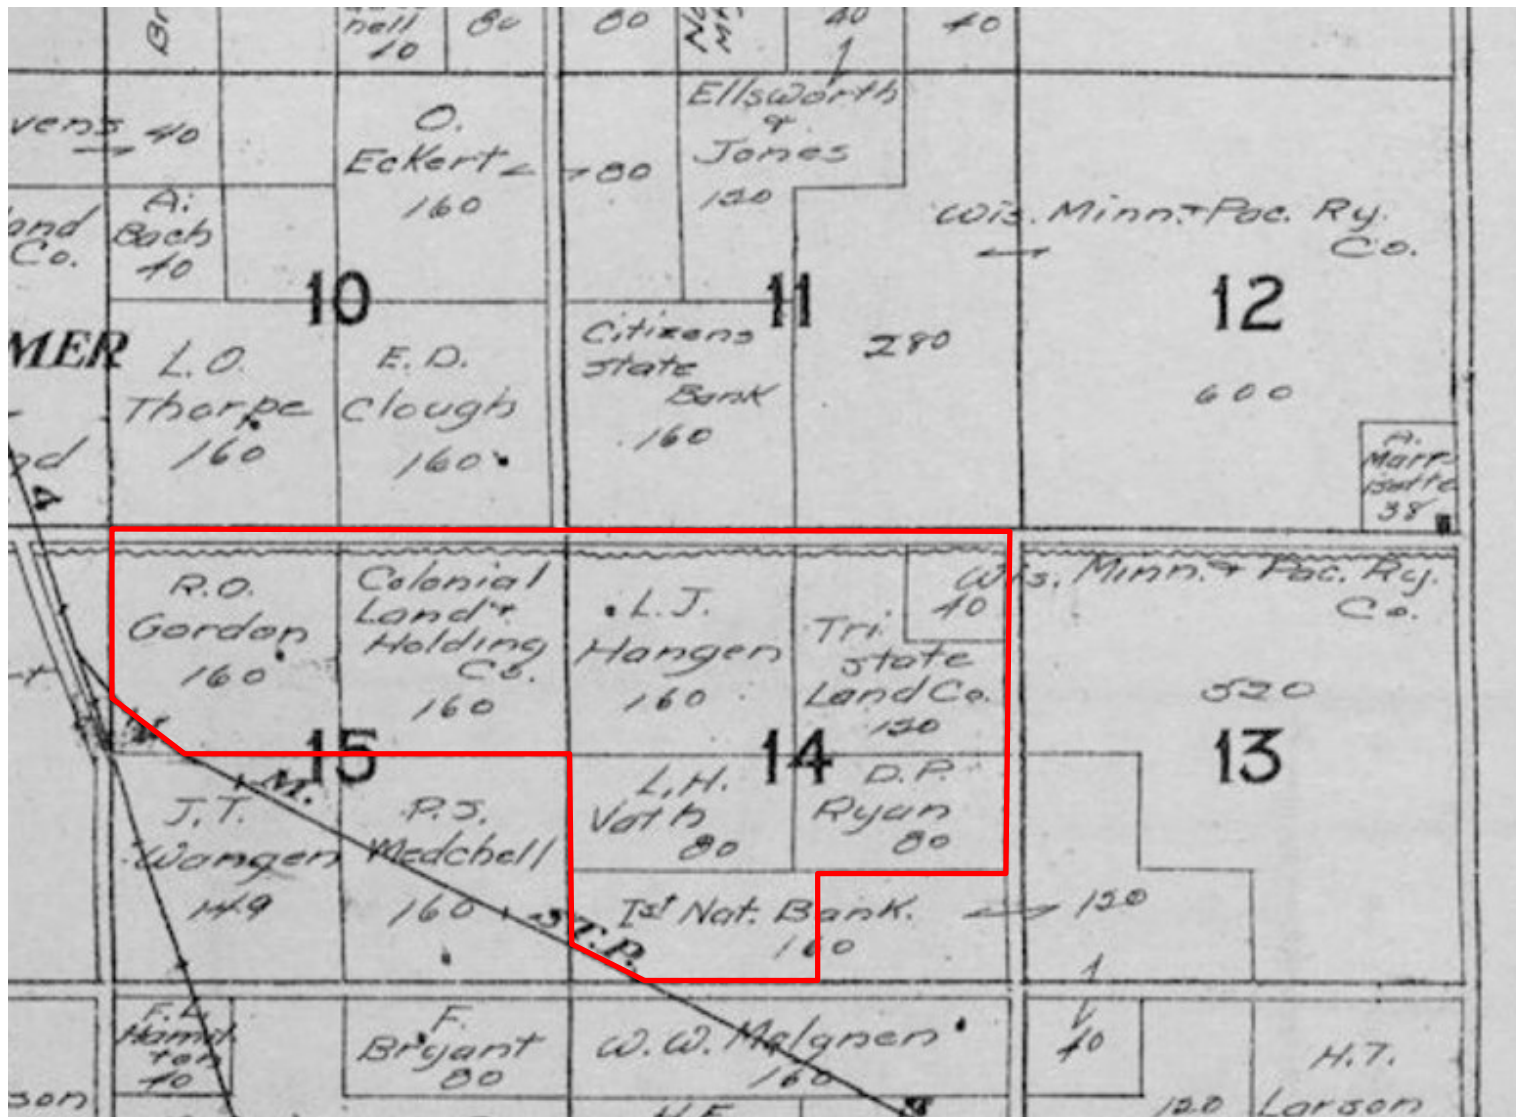 nell
10
80
80
40
40
vens 40
O.
Eckert
160
80
Ellsworth
&
Jones
120
Wis. Minn. & Pac. Ry.
Co.
and
Co.
A.
Bach
40
10
11
12
MER
L. O.
Thorpe
160
E. D.
Clough
160
Citizens
State
Bank
160
280
600
A.
38
R.O.
Gordon
160
Colonial
Land &
Holding
Co.
160
L. J.
Hangen
160
Tri
State
Land Co.
120
40
Wis. Minn. & Pac. Ry.
Co.
520
15
14
13
M.
J. T.
Wangen
149
P.S.
Medchell
160
ST. P.
L. H.
Vath
80
D. P.
Ryan
80
1st Nat. Bank.
160
120
F. L.
Hamil
ton
40
F.
Bryant
80
W. W. Malgnen
160
40
H. T.
Larson
120
son
H. F.